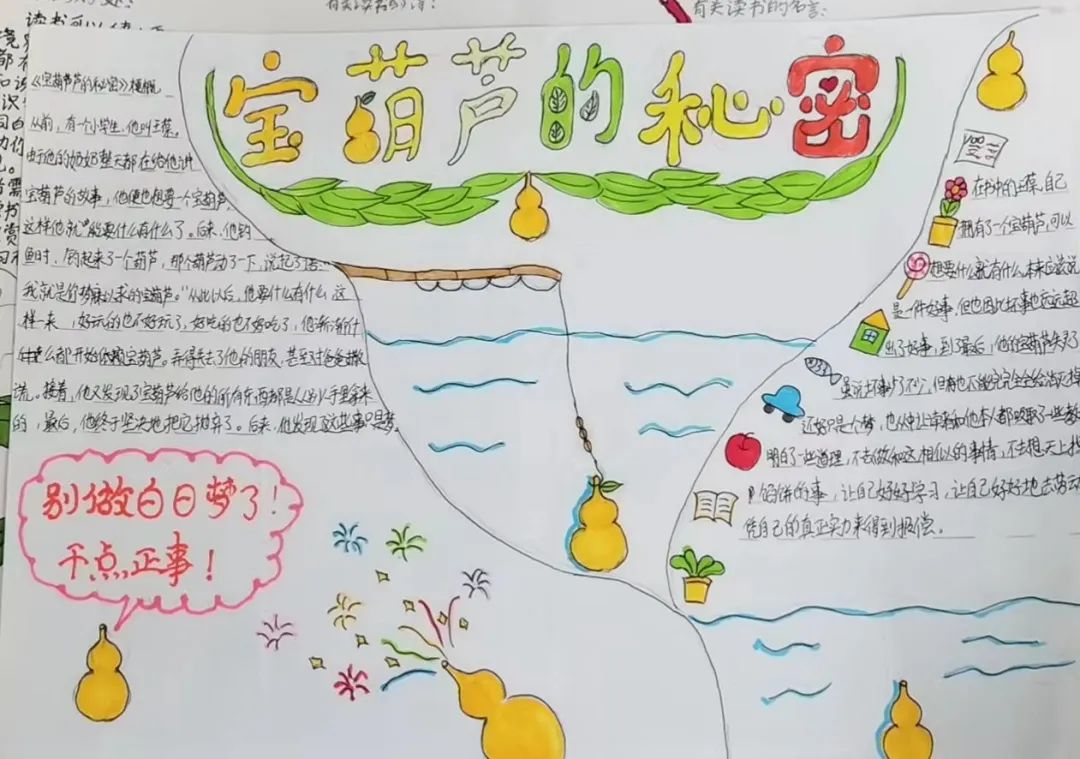 有关读书的名言：
宝葫芦的秘密
《宝葫芦的秘密》梗概
从前，有一个小学生，他叫王葆，
由于他的奶奶整天都在给他讲
宝葫芦的故事，他便也想要一个宝葫芦，
这样他就能要什么有什么了。后来，他钓
鱼时，钓起来了一个葫芦，那个葫芦动了一下，说起了话：
我就是你梦寐以求的宝葫芦。”从此以后，他要什么有什么，这
样一来，好玩的也不好玩了，好吃的也不好吃了，他渐渐什
么都开始依赖宝葫芦。弄得失去了他的朋友，甚至对爸爸撒
谎。接着，他又发现了宝葫芦给他的所有东西都是从别人手里拿来
的，最后，他终于坚决地把它抛弃了。后来，他发现这些事只是梦。
别做白日梦了！
干点正事！
100
在书中的王葆，自己
拥有了一个宝葫芦，可以
想要什么就有什么，本来应该说
是一件好事，但也因此坏事也远远超
出了好事，到了最后，他的宝葫芦失
虽说坏事少了不少，但有也不能完完全全给
还好只是个梦，也从中让
和他本人都吸取了一些教
明白了一些道理，不去做和这相似的事情，不去想天上掉
馅饼的事，让自己好好学习，让自己好好地去劳动
凭自己的真正实力来得到报偿。